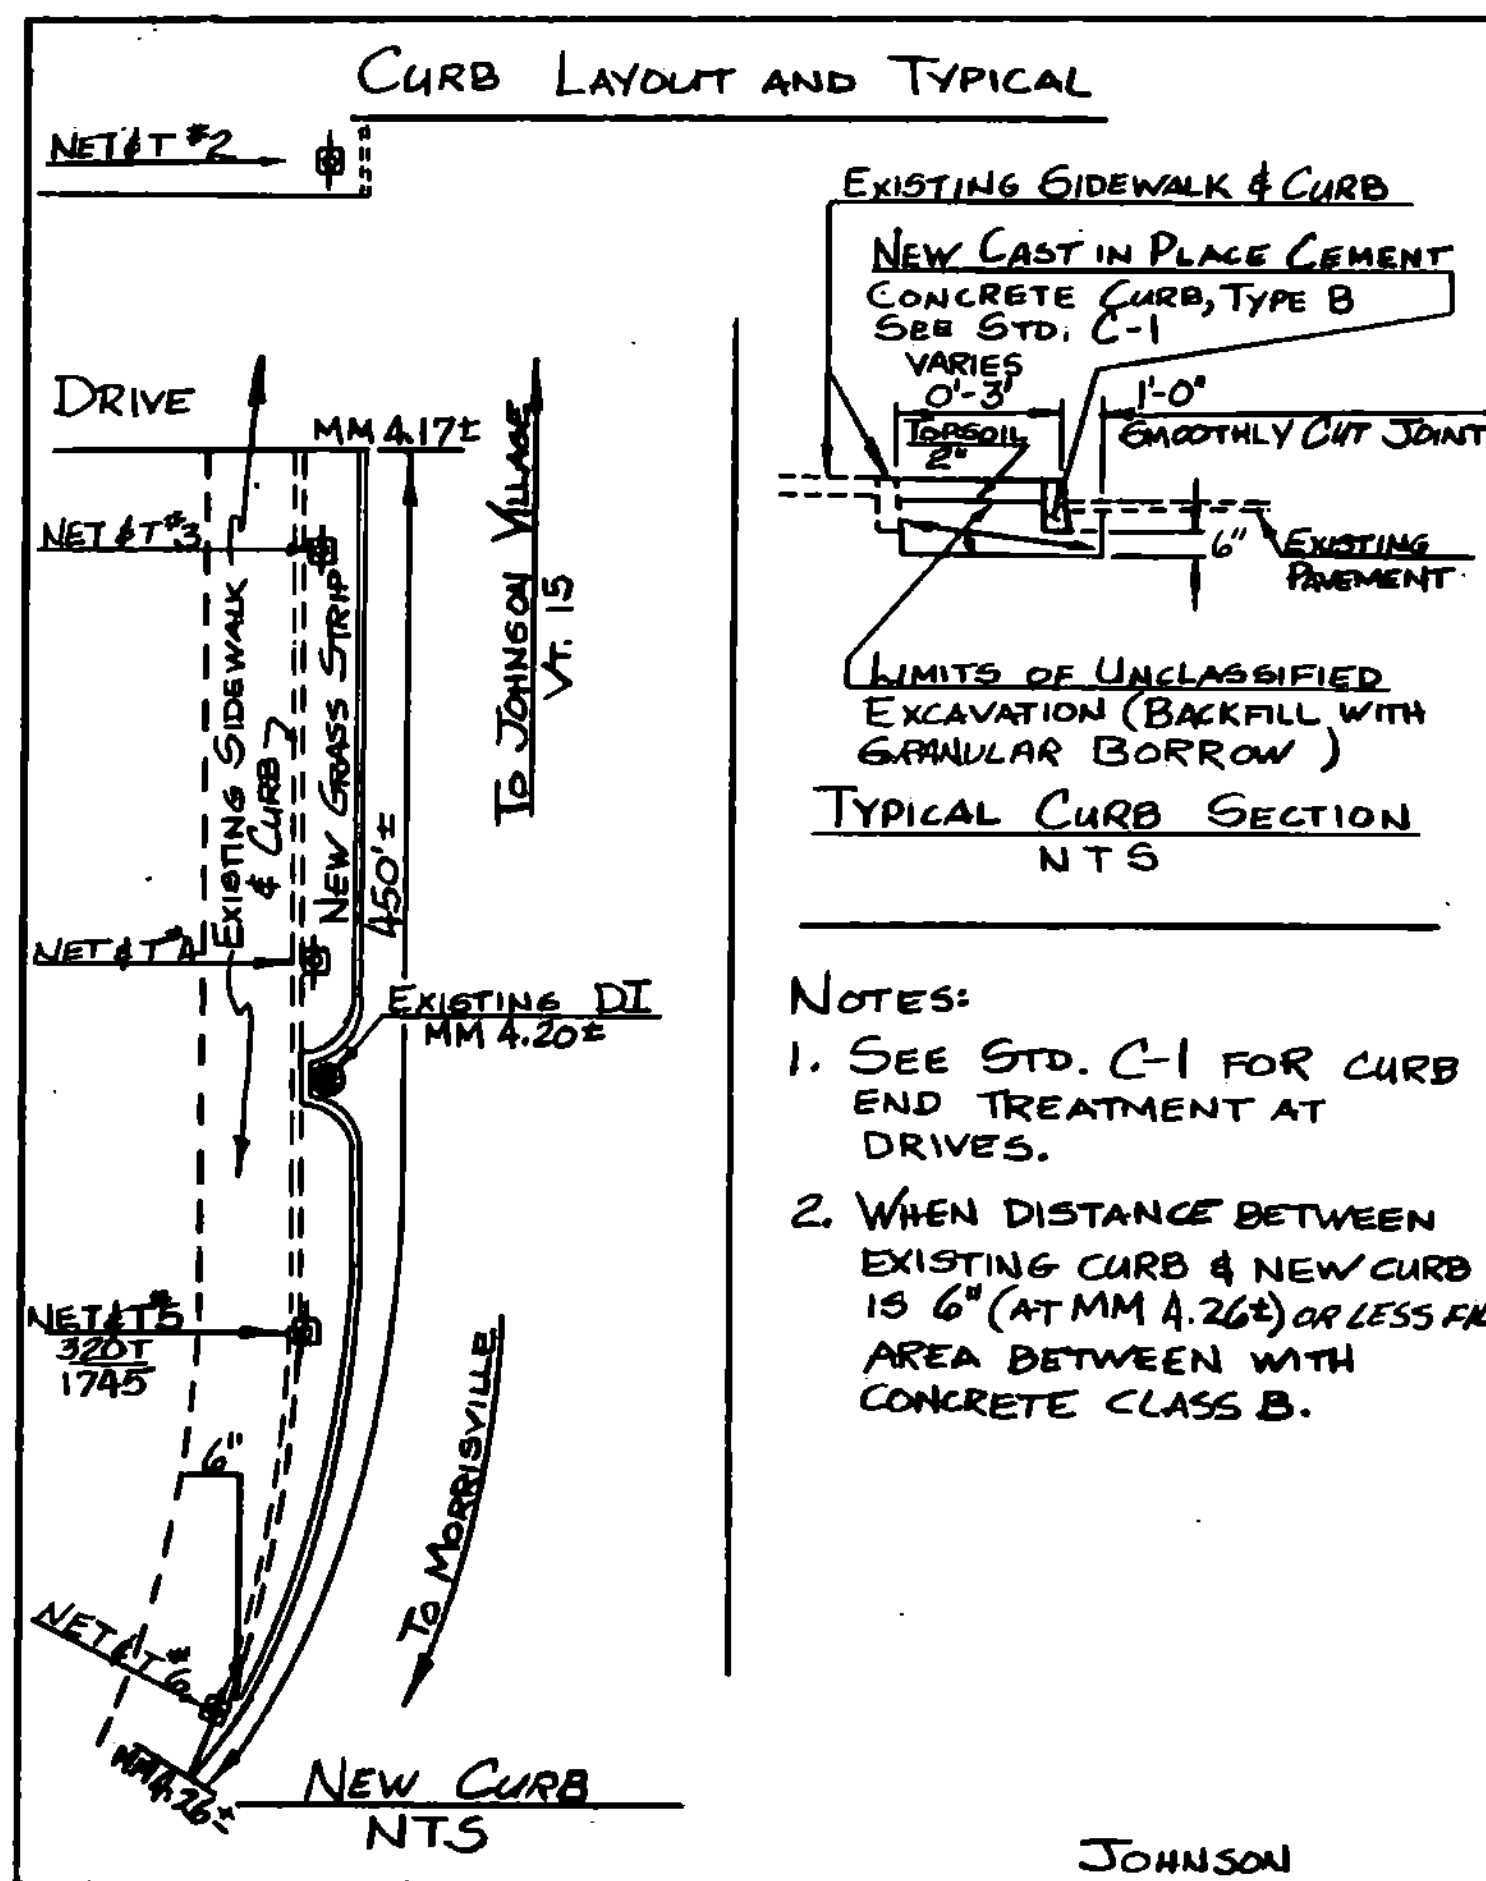 CURB LAYOUT AND TYPICAL
NET&T #2
DRIVE
MM 4.17±
NET&T #3
EXISTING SIDEWALK
& CURB
NEW GRASS STRIP
450'±
TO JOHNSON VILLAGE
VT. 15
NET&T #4
EXISTING DI
MM 4.20±
NET&T #5
320T
1745
6"
TO MORRISVILLE
NET&T #6
MM 4.26±
NEW CURB
NTS
EXISTING SIDEWALK & CURB
NEW CAST IN PLACE CEMENT
CONCRETE CURB, TYPE B
SEE STD. C-1
VARIES
0'-3'
1'-0"
TOPSOIL
2"
SMOOTHLY CUT JOINT
6"
EXISTING
PAVEMENT
LIMITS OF UNCLASSIFIED
EXCAVATION (BACKFILL WITH
GRANULAR BORROW)
TYPICAL CURB SECTION
NTS
NOTES:
1. SEE STD. C-1 FOR CURB
END TREATMENT AT
DRIVES.
2. WHEN DISTANCE BETWEEN
EXISTING CURB & NEW CURB
IS 6" (AT MM 4.26±) OR LESS
AREA BETWEEN WITH
CONCRETE CLASS B.
JOHNSON